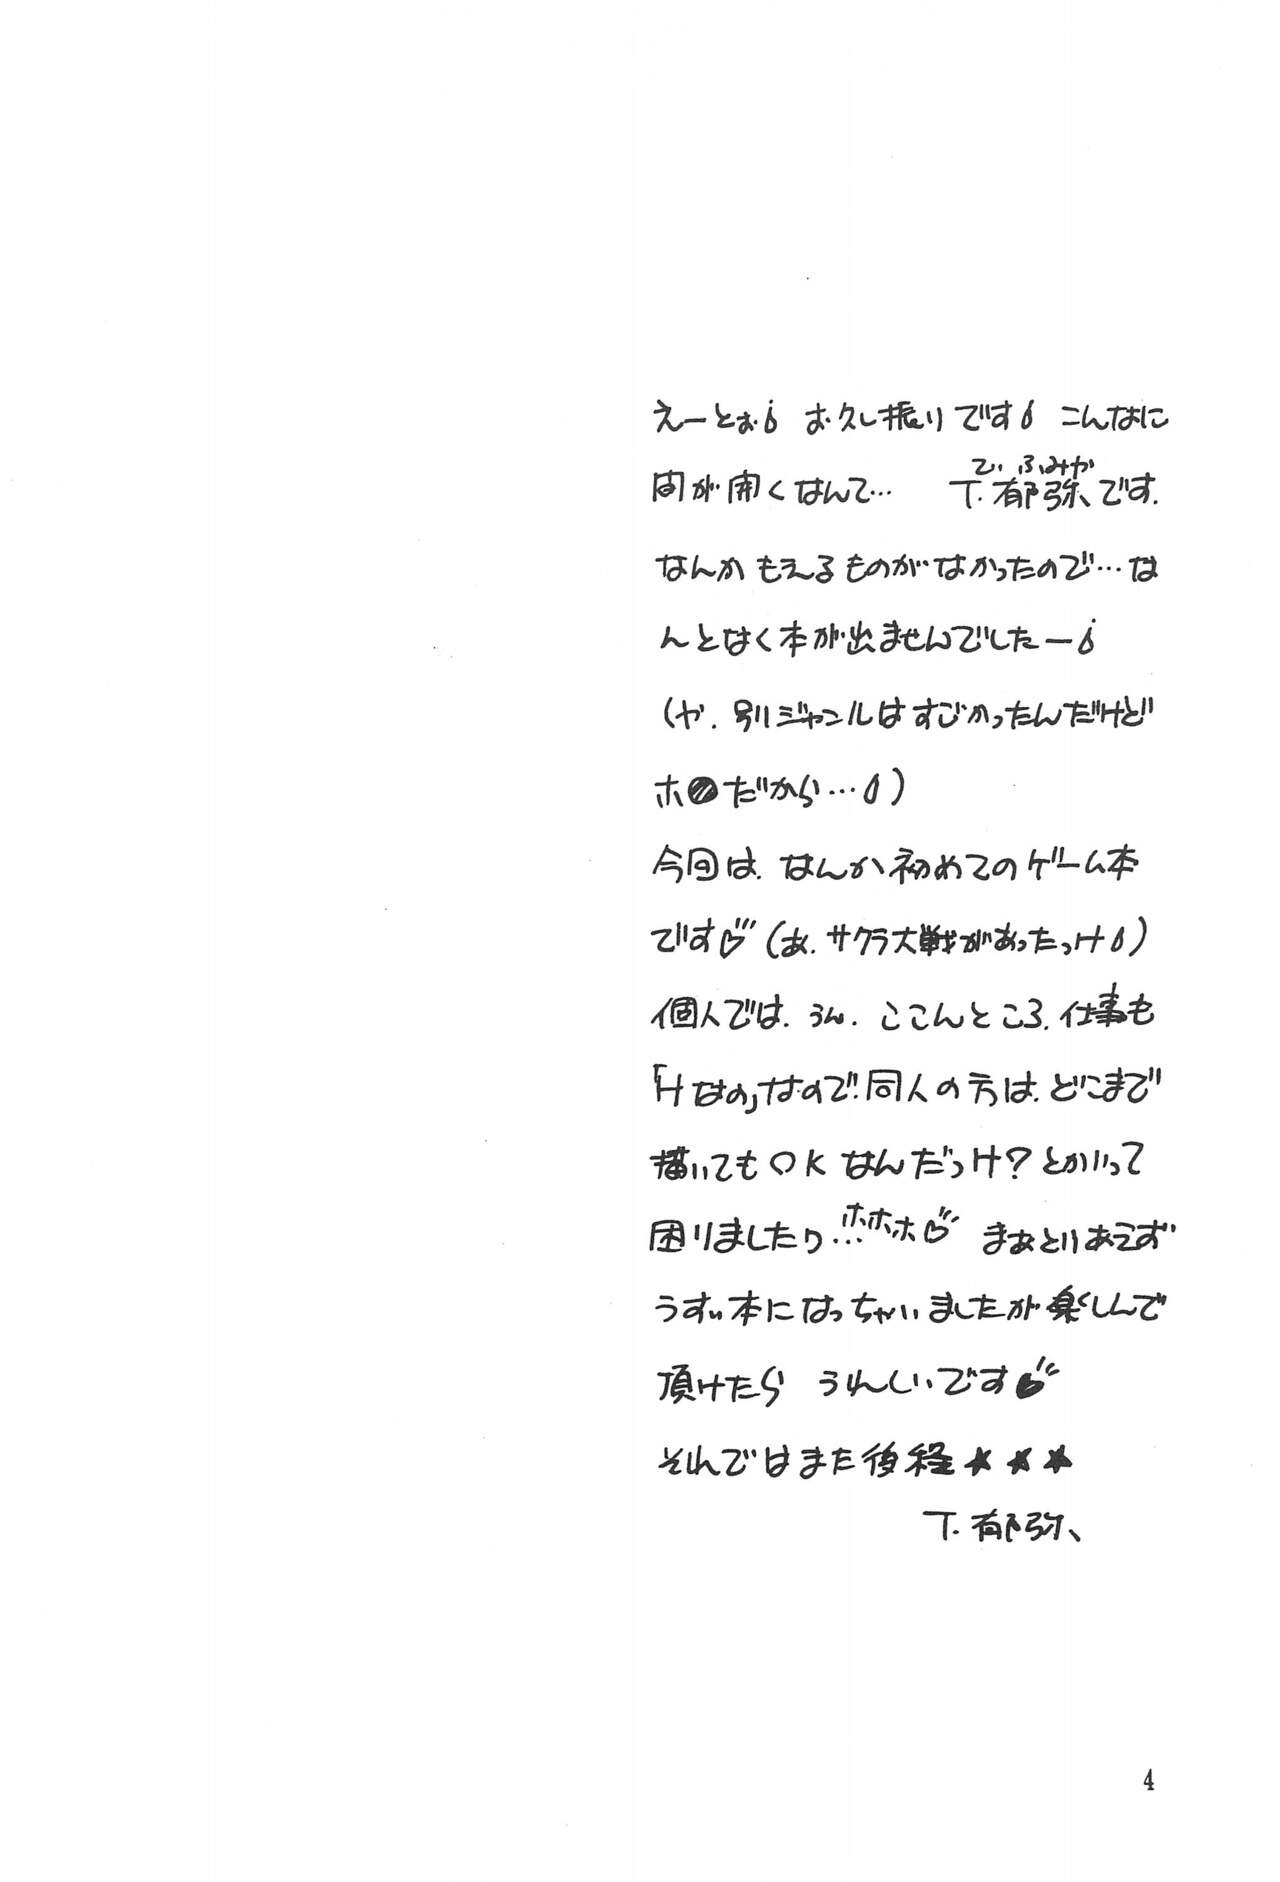 えーとぉ お久し振りです こんなに
間が開くなんて… T.郁弥です.
てぃ ふみや
なんかもえるものがなかったので…な
んとなく本が出ませんでしたー
(や.別ジャンルはすごかったんだけど
ホ●だから…)
今回は.なんか初めてのゲーム本
です♡(あ.サクラ大戦があったっけ)
個人では.うん.ここんところ.仕事も
「Hなの」なので.同人の方は.どこまで
描いてもOKなんだっけ?とかいって
困りましたり…ホホホ♡ まあとりあえず
うすい本になっちゃいましたが楽しんで
頂けたら うれしいです♥
それではまた後程★★★
T.郁弥
4